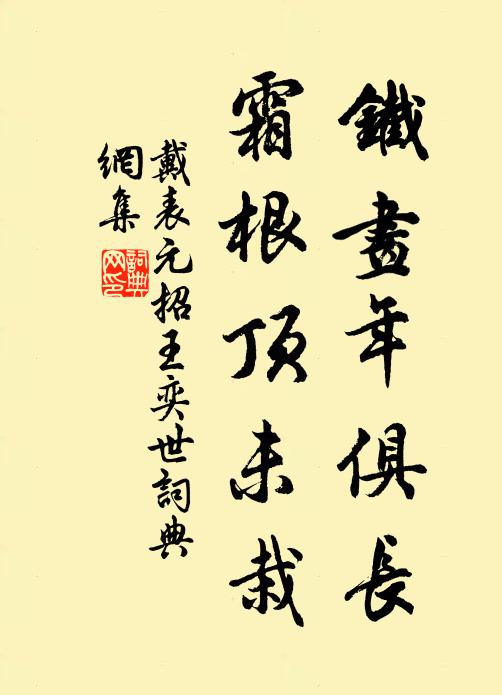 鐵畫年俱長
霜根頂未栽
戴表元招王奕世詞典
網集
詞典网印